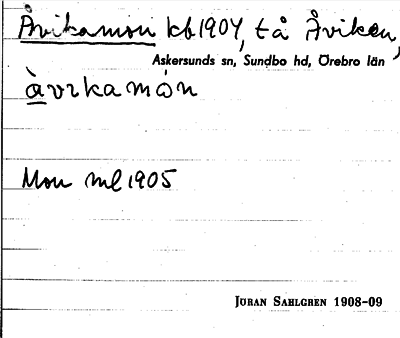 Åvikamon kb 1907, tå Åviken,
Askersunds sn, Sundbo hd, Örebro län
àvikamón
Mon ml 1905
Jöran Sahlgren 1908-09